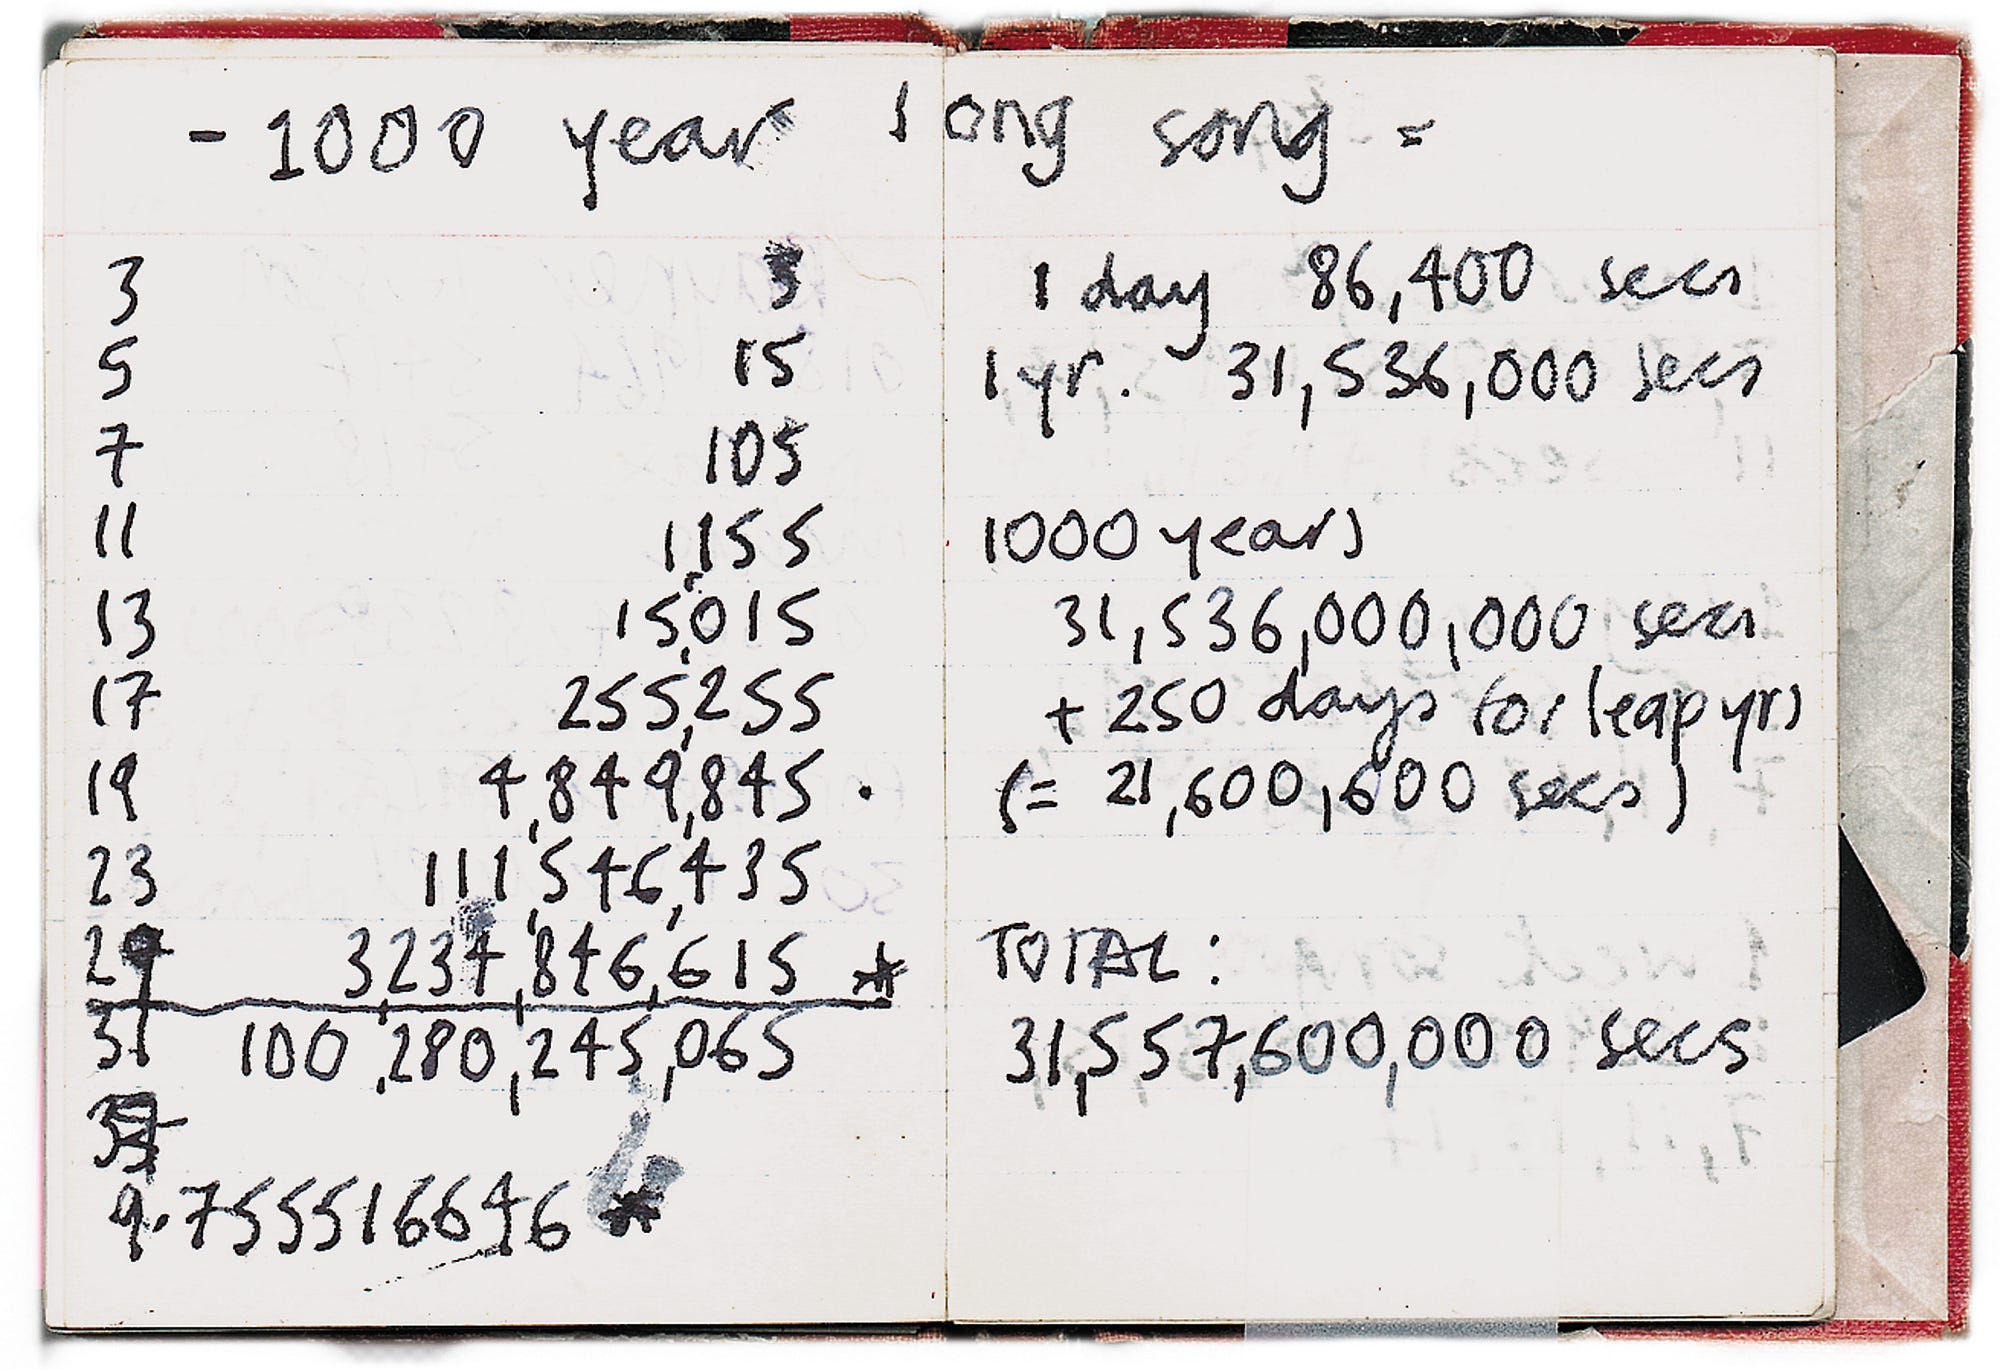 - 1000 year long song =
3 3
5 15
7 105
11 1,155
13 15,015
17 255,255
19 4,849,845 .
23 111,546,435
29 3,234,846,615 *
31 100,280,245,065
9.755516646 *
1 day 86,400 secs
1 yr. 31,536,000 secs
1000 years
31,536,000,000 secs
+ 250 days for leap yrs
(= 21,600,600 secs)
TOTAL:
31,557,600,000 secs